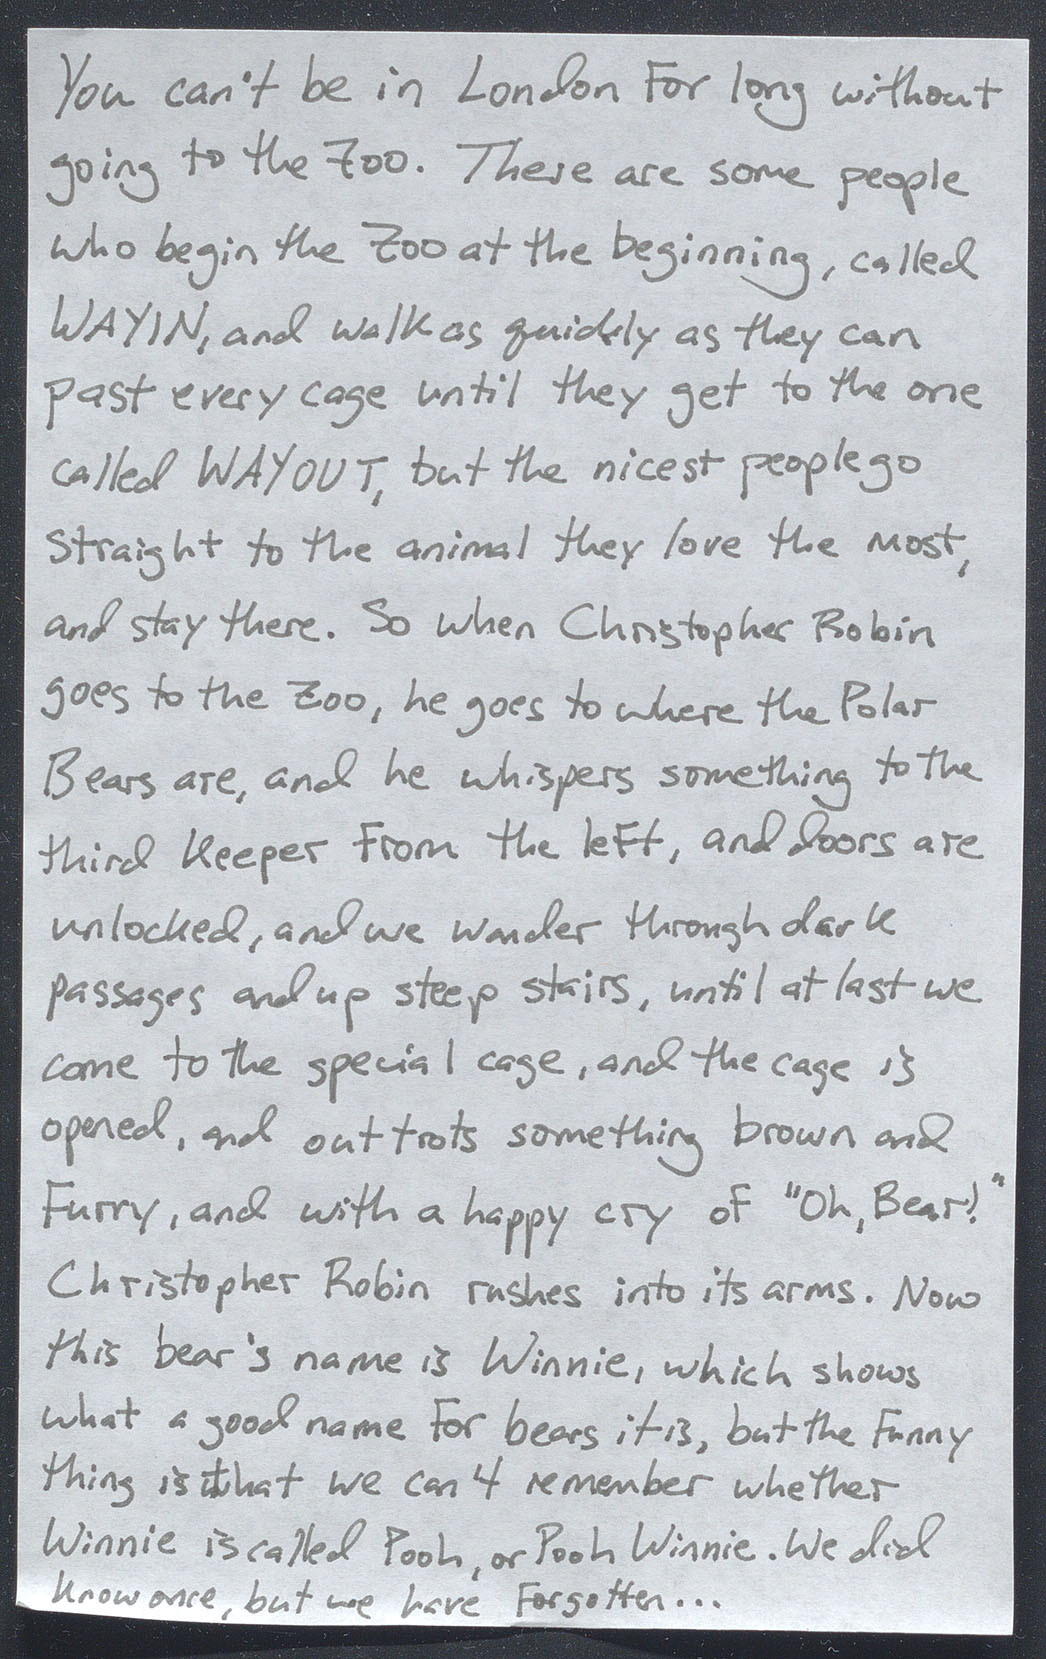 You can't be in London For long without
going to the Zoo. There are some people
who begin the Zoo at the beginning, called
WAYIN, and walk as quickly as they can
past every cage until they get to the one
called WAYOUT, but the nicest people go
straight to the animal they love the most,
and stay there. So when Christopher Robin
goes to the Zoo, he goes to where the Polar
Bears are, and he whispers something to the
third keeper From the left, and doors are
unlocked, and we wander through dark
passages and up steep stairs, until at last we
come to the special cage, and the cage is
opened, and out trots something brown and
Furry, and with a happy cry of "Oh, Bear!"
Christopher Robin rushes into its arms. Now
this bear's name is Winnie, which shows
what a good name For bears it is, but the Funny
thing is that we can't remember whether
Winnie is called Pooh, or Pooh Winnie. We did
know once, but we have Forgotten...